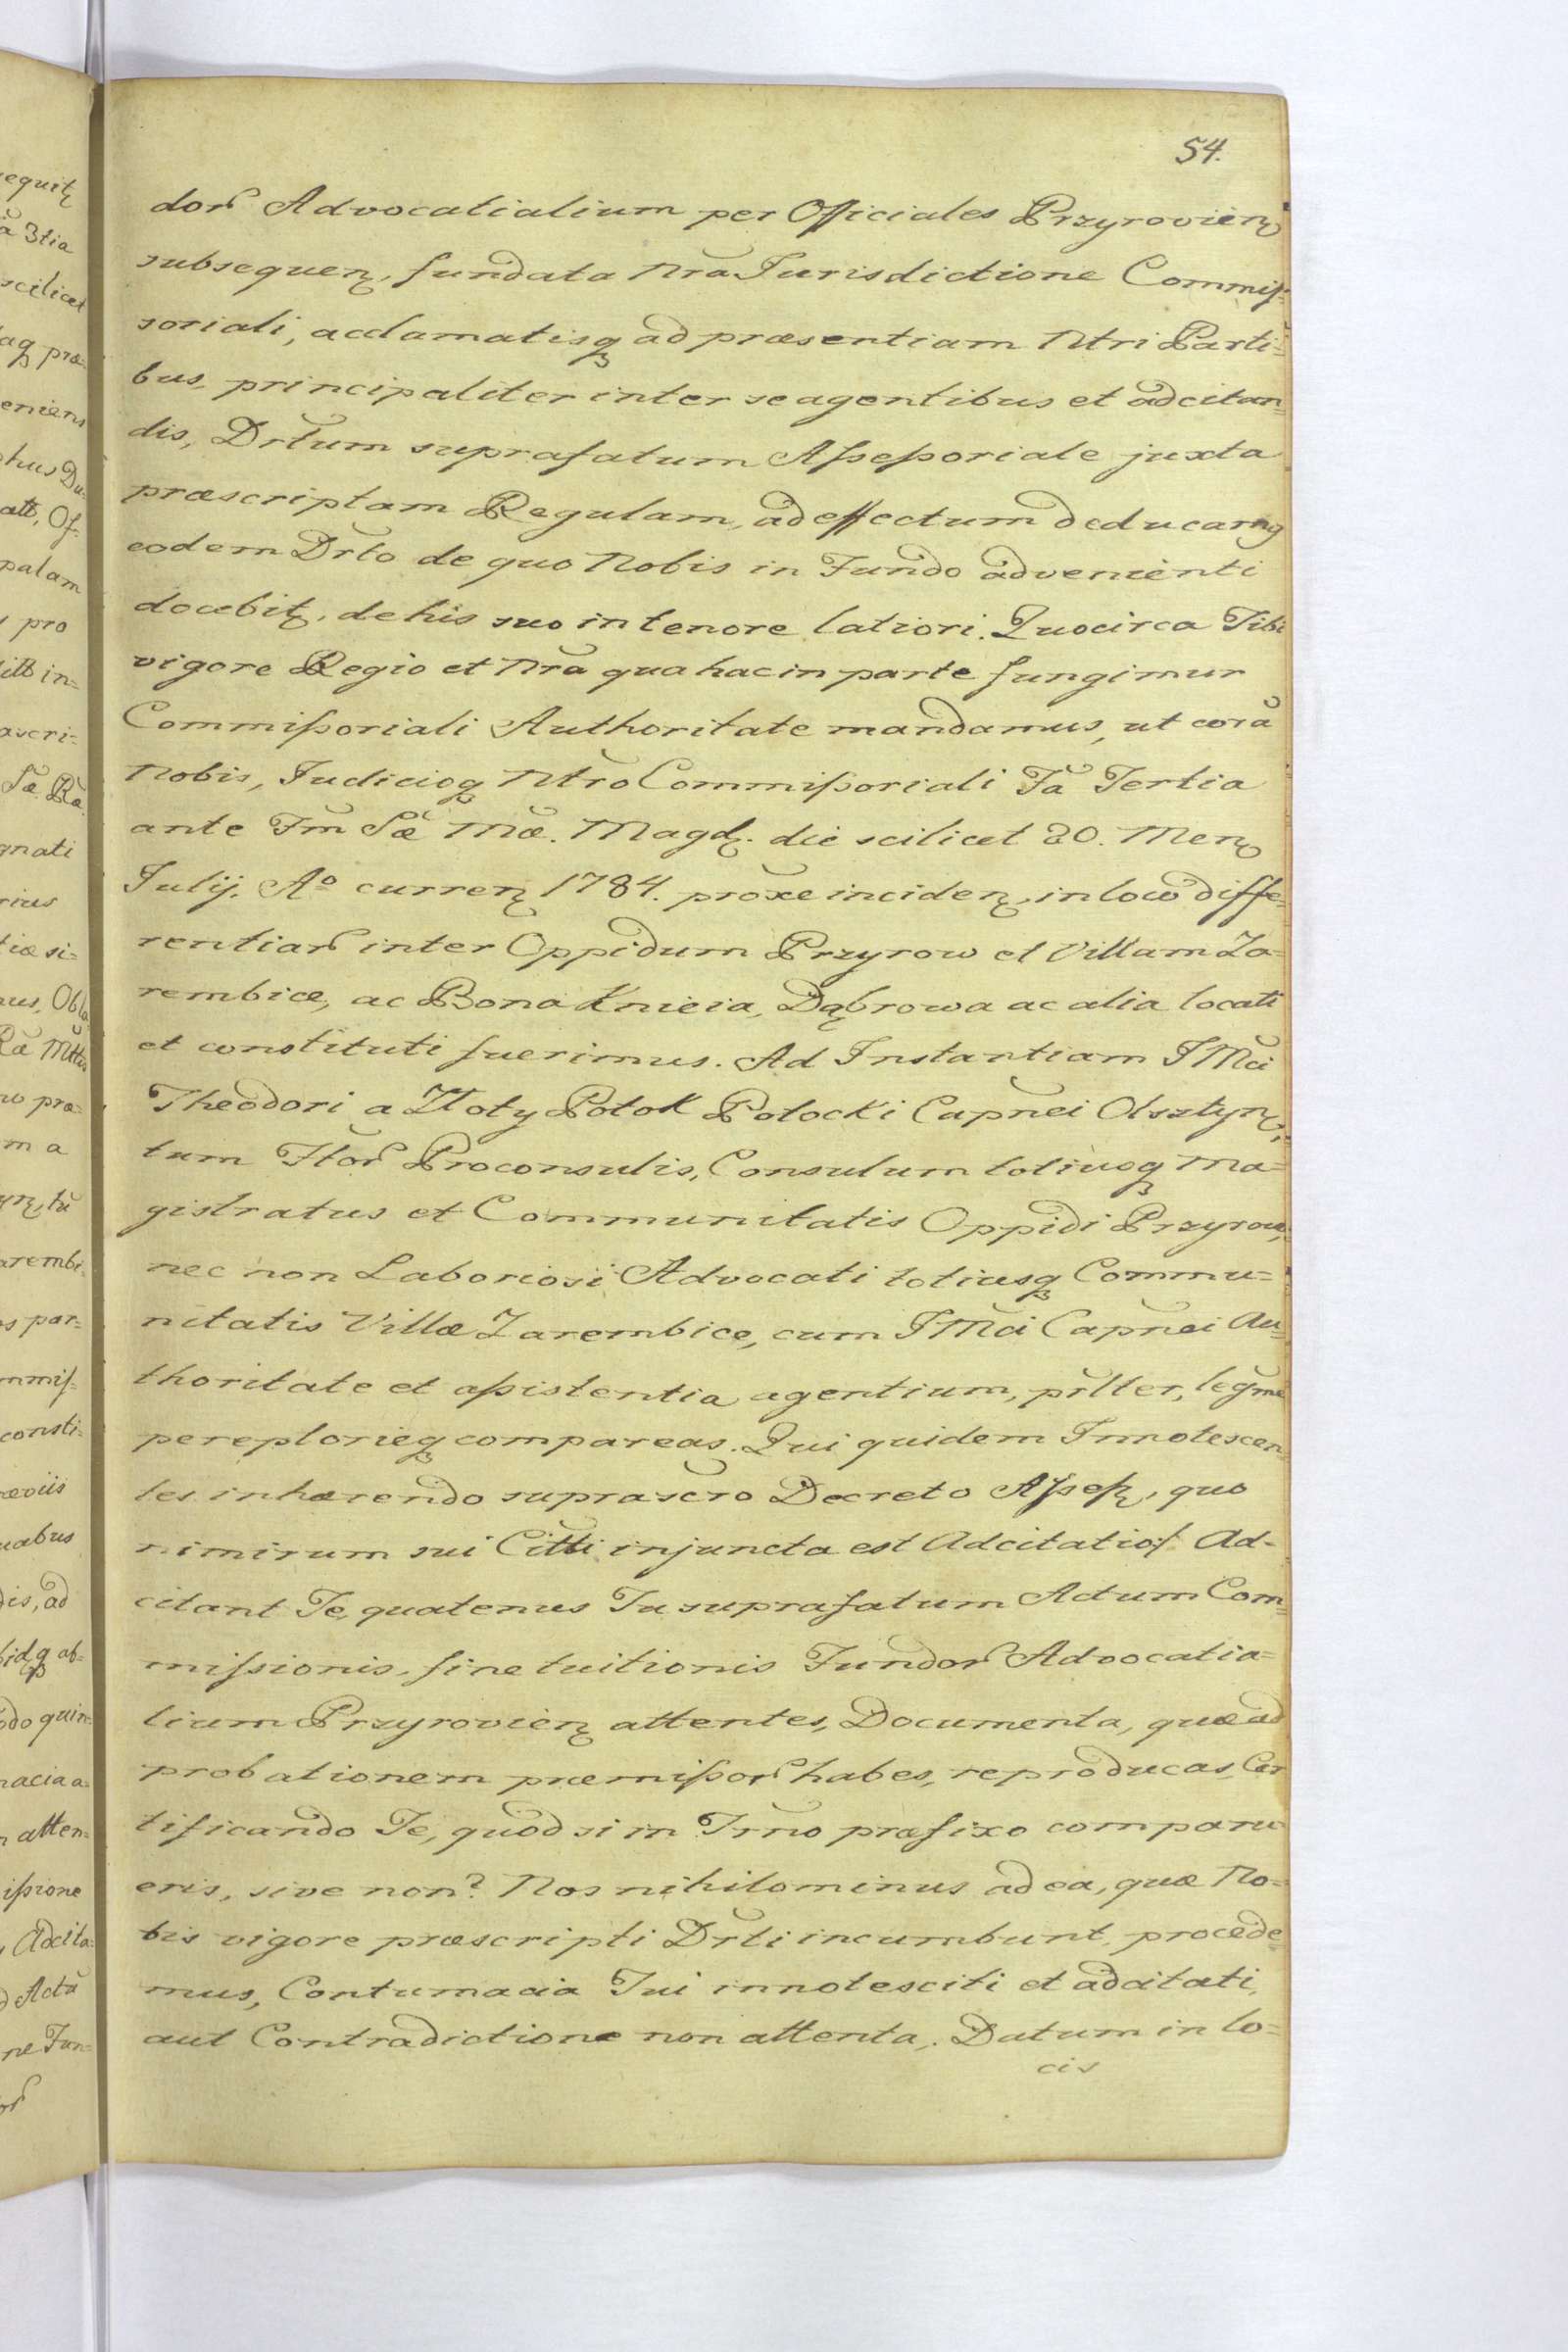 54.
dor Advocatialium per Officiales Przyrovien
subsequen, fundata Nra Jurisdictione Commis-
soriali, acclamatisq ad præsentiam Ntri Parti=
bus, principaliter inter se agentibus et adcitan=
dis, Drtum suprafatum Assessoriale juxta
præscriptam Regulam, ad effectum deducamq
eodem Drto de quo Nobis in Fundo advenienti
docebit, de his suo in tenore latiori. Quocirca Tibi
vigore Regio et Nra qua hac in parte fungimur
Commissoriali Authoritate mandamus, ut corā
Nobis, Judicioq Ntro Commissoriali Fa Tertia
ante Fm Sæ Mæ. Magd. die scilicet 20. Men
Julij. Aº curren 1784. proxe inciden, in loco diffe=
rentiar inter Oppidum Przyrow et Villam Za=
rembice, ac Bona Knieia, Dąbrowa ac alia locati
et constituti fuerimus. Ad Instantiam JMci
Theodori a Złoty Potok Potocki Capnei Olsztyn,
tum Ftor Proconsulis, Consulum totiusq Ma=
gistratus et Communitatis Oppidi Przyrow,
nec non Laboriosi Advocati totiusq Commu=
nitatis Villæ Zarembice, cum JMci Capnei Au=
thoritate et assistentia agentium, prlter, legme
pereplorieq compareas. Qui quidem Innotescen=
tes inhærendo suprascro Decreto Assess, quo
nimirum sui Citti injuncta est Adcitatio/. Ad-
citant Te, quatenus Tu suprafatum Actum Com=
missionis, sine tuitionis Fundor Advocatia=
lium Przyrovien attentes, Documenta, quæ ad
probationem præmissor habes, reproducas, Cer
tificando Te, quod si in Trno præfixo comparu
eris, sive non? Nos nihilominus ad ea, quæ No=
bis vigore præscripti Drti incumbunt, procede
mus, Contumacia Tui innotesciti et adcitati,
aut Contradictione non attenta,. Datum in lo=
cis